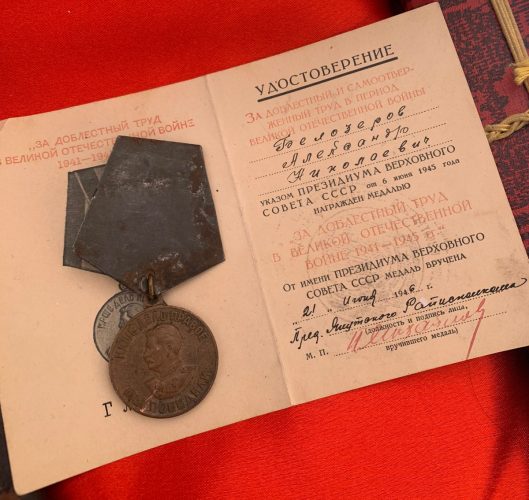 „ЗА ДОБЛЕСТНЫЙ ТРУД
В ВЕЛИКОЙ ОТЕЧЕСТВЕННОЙ ВОЙНЕ
1941—19
НАШЕ ДЕЛО ПРАВОЕ
МЫ ПОБЕДИЛИ
УДОСТОВЕРЕНИЕ
ЗА ДОБЛЕСТНЫЙ И САМООТВЕР-
ЖЕННЫЙ ТРУД В ПЕРИОД
ВЕЛИКОЙ ОТЕЧЕСТВЕННОЙ ВОЙНЫ
Белозеров
Александр
Николаевич
УКАЗОМ ПРЕЗИДИУМА ВЕРХОВНОГО
СОВЕТА СССР от 6 июня 1945 года
НАГРАЖДЕН МЕДАЛЬЮ
„ЗА ДОБЛЕСТНЫЙ ТРУД
В ВЕЛИКОЙ ОТЕЧЕСТВЕННОЙ
ВОЙНЕ 1941—1945 гг."
От имени ПРЕЗИДИУМА ВЕРХОВНОГО
СОВЕТА СССР МЕДАЛЬ ВРУЧЕНА
„21" июня 1946 г.
Пред.
(должность и подпись лица,
М. П. вручившего медаль)